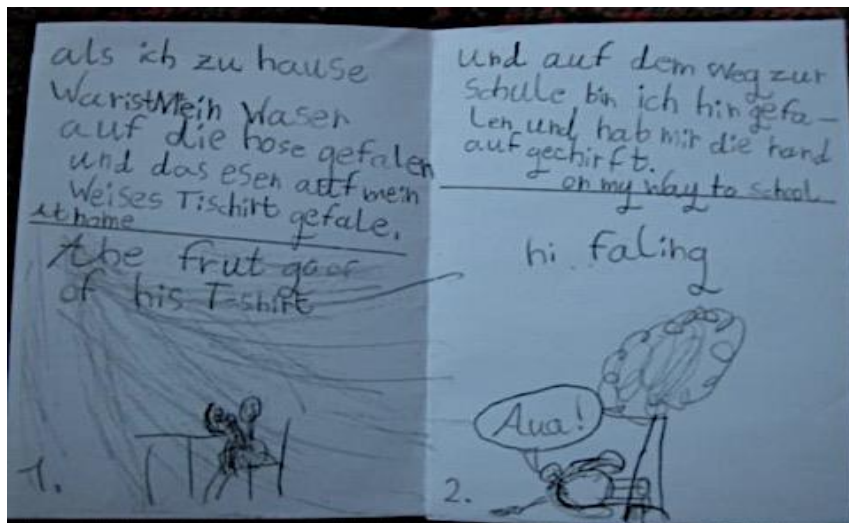 als ich zu hause
WaristMein Waser
auf die hose gefalen
und das esen auf mein
Weises Tischirt gefale.
at home
the frut
of his T-shirt
1.
und auf dem weg zur
Schule bin ich hin gefa-
len und hab mir die hand
auf gechirft.
on my way to school
hi faling
Aua!
2.